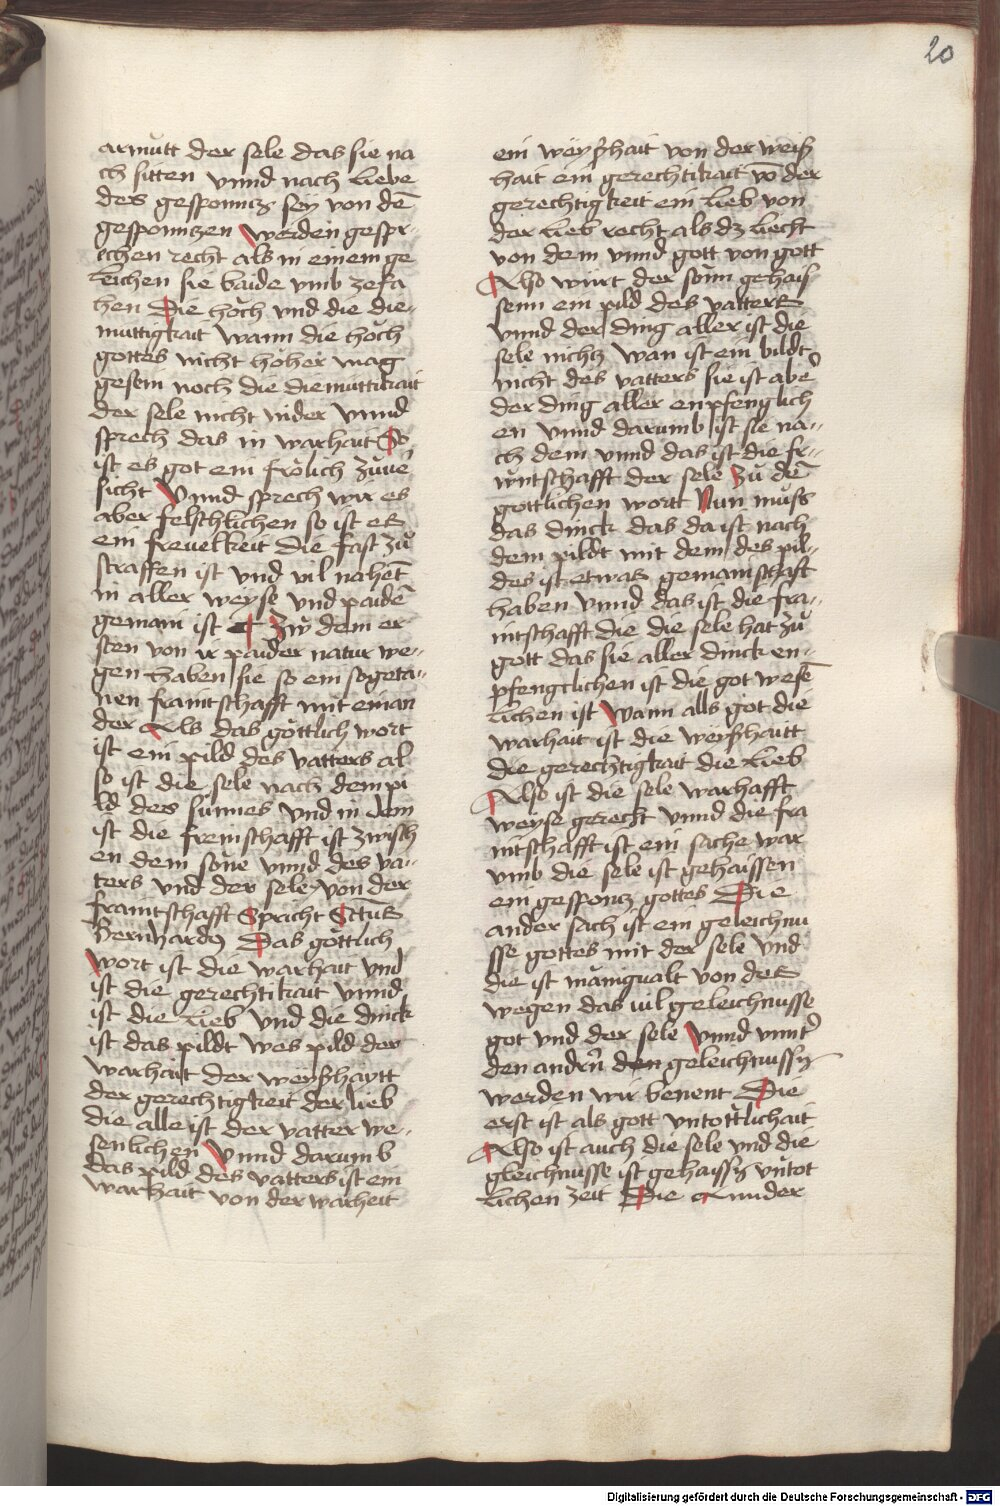 20
armůtt der sele das sie na
ch sitten vnnd nach liebe
des gesponntz sey von dē
gesponntzen werden gespr-
ochen recht als in einem ge
leichen sie baide vmb zefa
hen Die hoch vnd die die-
muttigkait wann die hoch
gottes nicht hoher mag
gesein noch die diemuttikait
der sele nicht nider vnnd
sprech das in warhait So
ist es got ein frölich zůue
sicht Vnnd sprech wir es
aber felschlichen so ist es
ein freuelkeit die fast zů
straffen ist vnd vil nahet
in aller weyse vnd paidē
gemain ist Zw dem er
sten von ir paider natur we-
gen haben sie so ein sogeta-
nen fraintschafft mit einan
der Als das göttlich wort
ist ein pild des vatters al
so ist die sele nach dem pi
ld des sunnes vnd in dem
ist die freinschafft ist zwisch
en dem sone vnnd des va-
ters vnd der sele von der
fraintschafft Spricht Sctus
Bernhardus Das göttlich
wort ist die warhait vnd
ist die gerechtikait vnnd
ist die lieb vnd die dinck
ist das pildt wes pild der
warhait der weyßhaytt
der gerechtigkeit der lieb
die alle ist der vatter we-
senlichen Vnnd darumb
das pild des vatters ist ein
warhait von der warheit
ein weyßhait von der weiß
hait ein gerechtikait vō der
gerechtigkeit ein lieb von
der lieb recht als dz liecht
von dem vnnd gott von gott
Also wirt der sonn gehais
senn ein pild des vatters
vnnd der ding aller ist die
sele nichtz wan ist ein bildt
nicht des vatters sie ist aber
der ding aller enpfenglich
en vnnd darumb ist sie na-
ch dem vnnd das ist die fr-
untschafft der sele Zů dē
gottlichen wort Nun muss
das dinck das da ist nach
dem pildt mit dem des pil-
des ist etwas gemainschaft
haben vnnd das ist die fra-
intschafft die die sele hat zů
gott das sie aller dinck en-
pfengclichen ist die got wesē
lichen ist Wann alls got die
warhait ist die weyßhaitt
die gerechtigkait die lieb
Also ist die sele warhafft
weyse gerecht vnnd die fra
intschafft ist ein sache war
vmb die sele ist gehaissen
ein gesponcz gottes Die
ander sach ist ein geleichnu
sse gottes mit der sele vnd
die ist manigualt von des
wegen das vil geleichnusse
got vnd der sele Vnnd vnnt
den andrn den geleichnussz
werden wir benent Die
erst ist als gott vntottlichait
Also ist auch die sele vnd die
gleichnusse ist gehaissz vntot
lichen zeit Die Annder
Digitalisierung gefördert durch die Deutsche Forschungsgemeinschaft - DFG